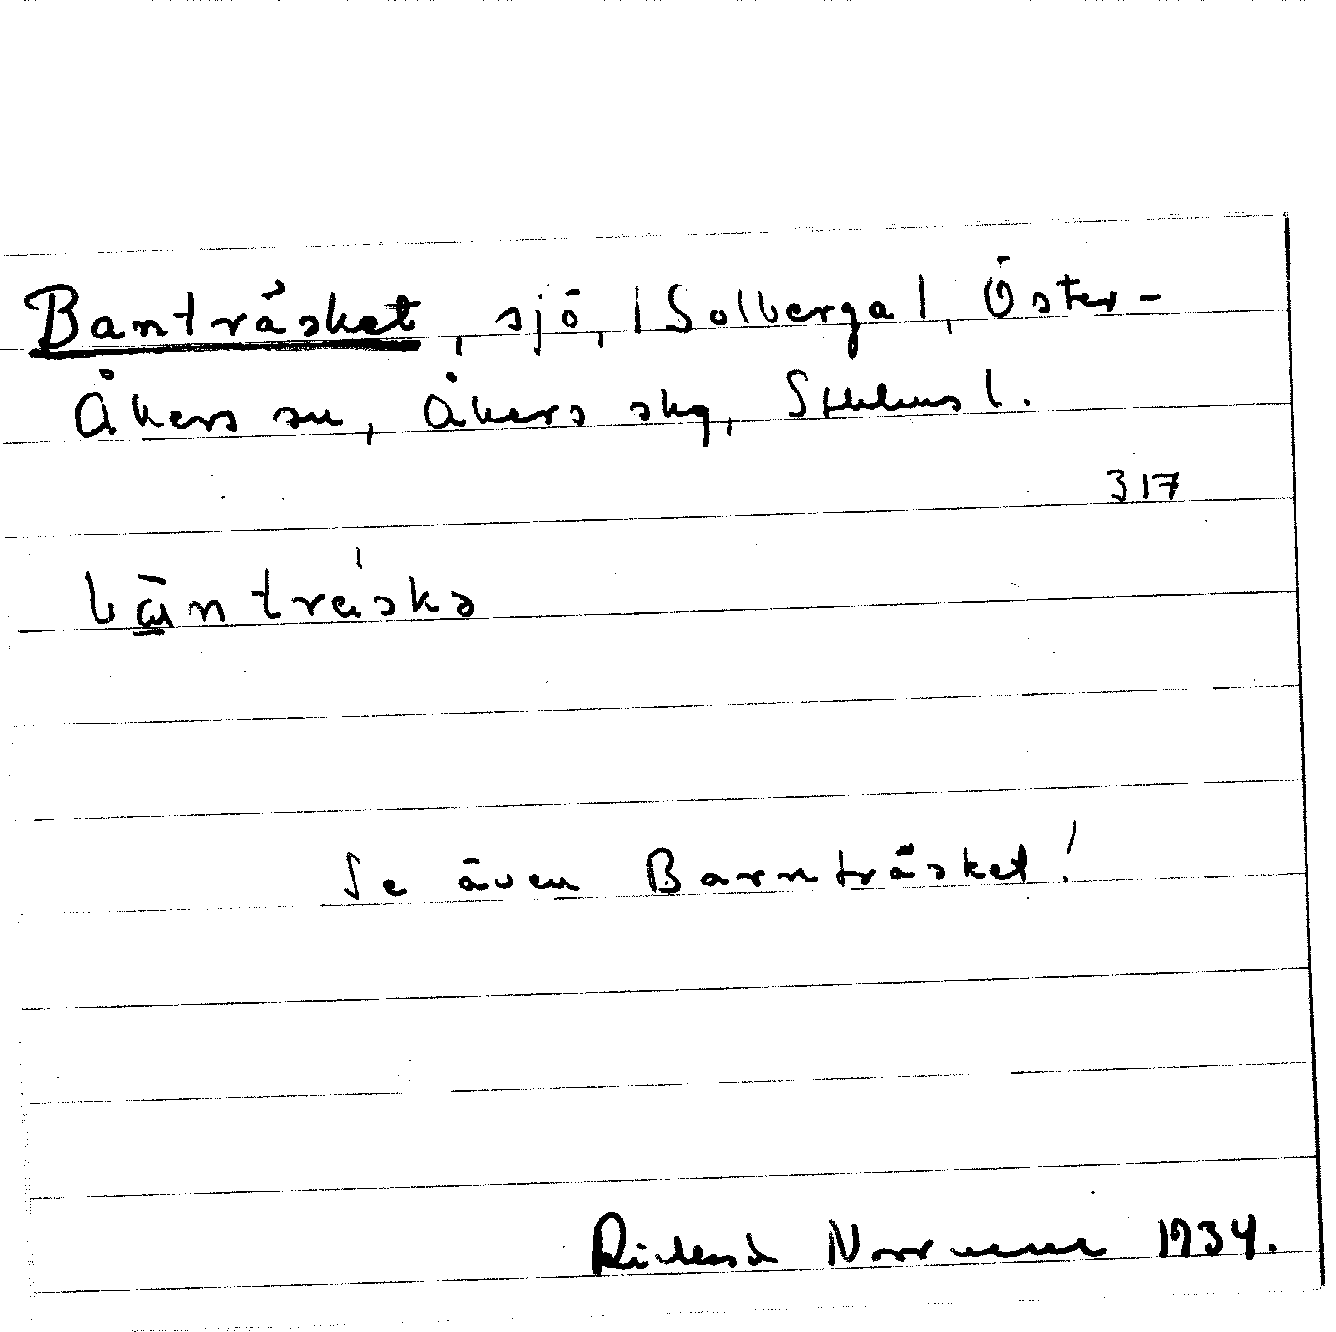 Banträsket, sjö, |Solberga|, Öster-
Åkers sn, Åkers skg, Sthlms l.
317
bān träskə
Se även Barnträsket!
Rickard Norrman 1934.